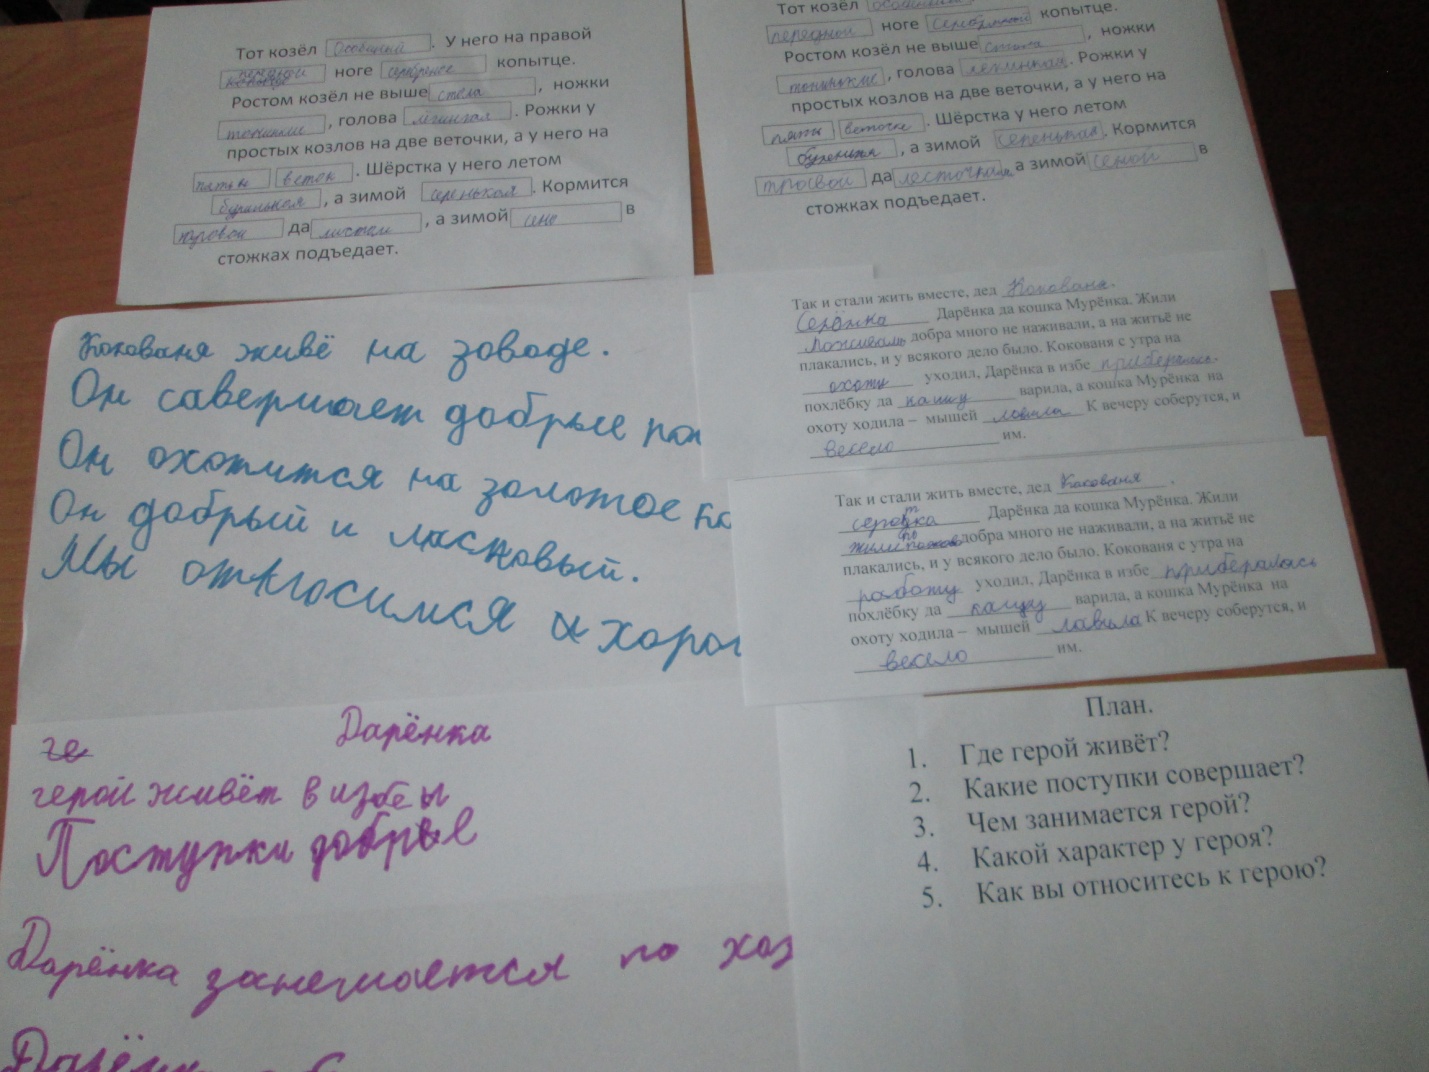 Тот козёл особенный. У него на правой
передней ноге серебрнее копытце.
Ростом козёл не выше стола, ножки
тоненькие, голова лёгинкая. Рожки у
простых козлов на две веточки, а у него на
пятьи веток. Шёрстка у него летом
буринькая, а зимой серенькая. Кормится
травой да листом, а зимой сено в
стожках подъедает.
Тот козёл
передней ноге копытце.
Ростом козёл не выше стола, ножки
тонинькие, голова лёгинкая. Рожки у
простых козлов на две веточки, а у него на
пять веточке. Шёрстка у него летом
буренькая, а зимой серенькая. Кормится
травой да листочкам, а зимой сеной в
стожках подъедает.
Кокованя живё на зоводе.
Он савершает добрые пос
Он охотится на золотое ко
Он добрый и ласковый.
Мы относимся к хорош
Так и стали жить вместе, дед Кокованя.
Серёнка Дарёнка да кошка Мурёнка. Жили
поживали добра много не наживали, а на житьё не
плакались, и у всякого дело было. Кокованя с утра на
охоту уходил, Дарёнка в избе приберались
похлёбку да кашу варила, а кошка Мурёнка на
охоту ходила – мышей ловила К вечеру соберутся, и
весело им.
Так и стали жить вместе, дед Кокованя,
Дарёнка да кошка Мурёнка. Жили
жили добра много не наживали, а на житьё не
плакались, и у всякого дело было. Кокованя с утра на
работу уходил, Дарёнка в избе прибералась
похлёбку да кашу варила, а кошка Мурёнка на
охоту ходила – мышей лавила К вечеру соберутся, и
весело им.
ге Дарёнка
герой живёт в избе ы
Поступки добрые
Дарёнка занемается по хоз
Дарёнк
План.
1. Где герой живёт?
2. Какие поступки совершает?
3. Чем занимается герой?
4. Какой характер у героя?
5. Как вы относитесь к герою?